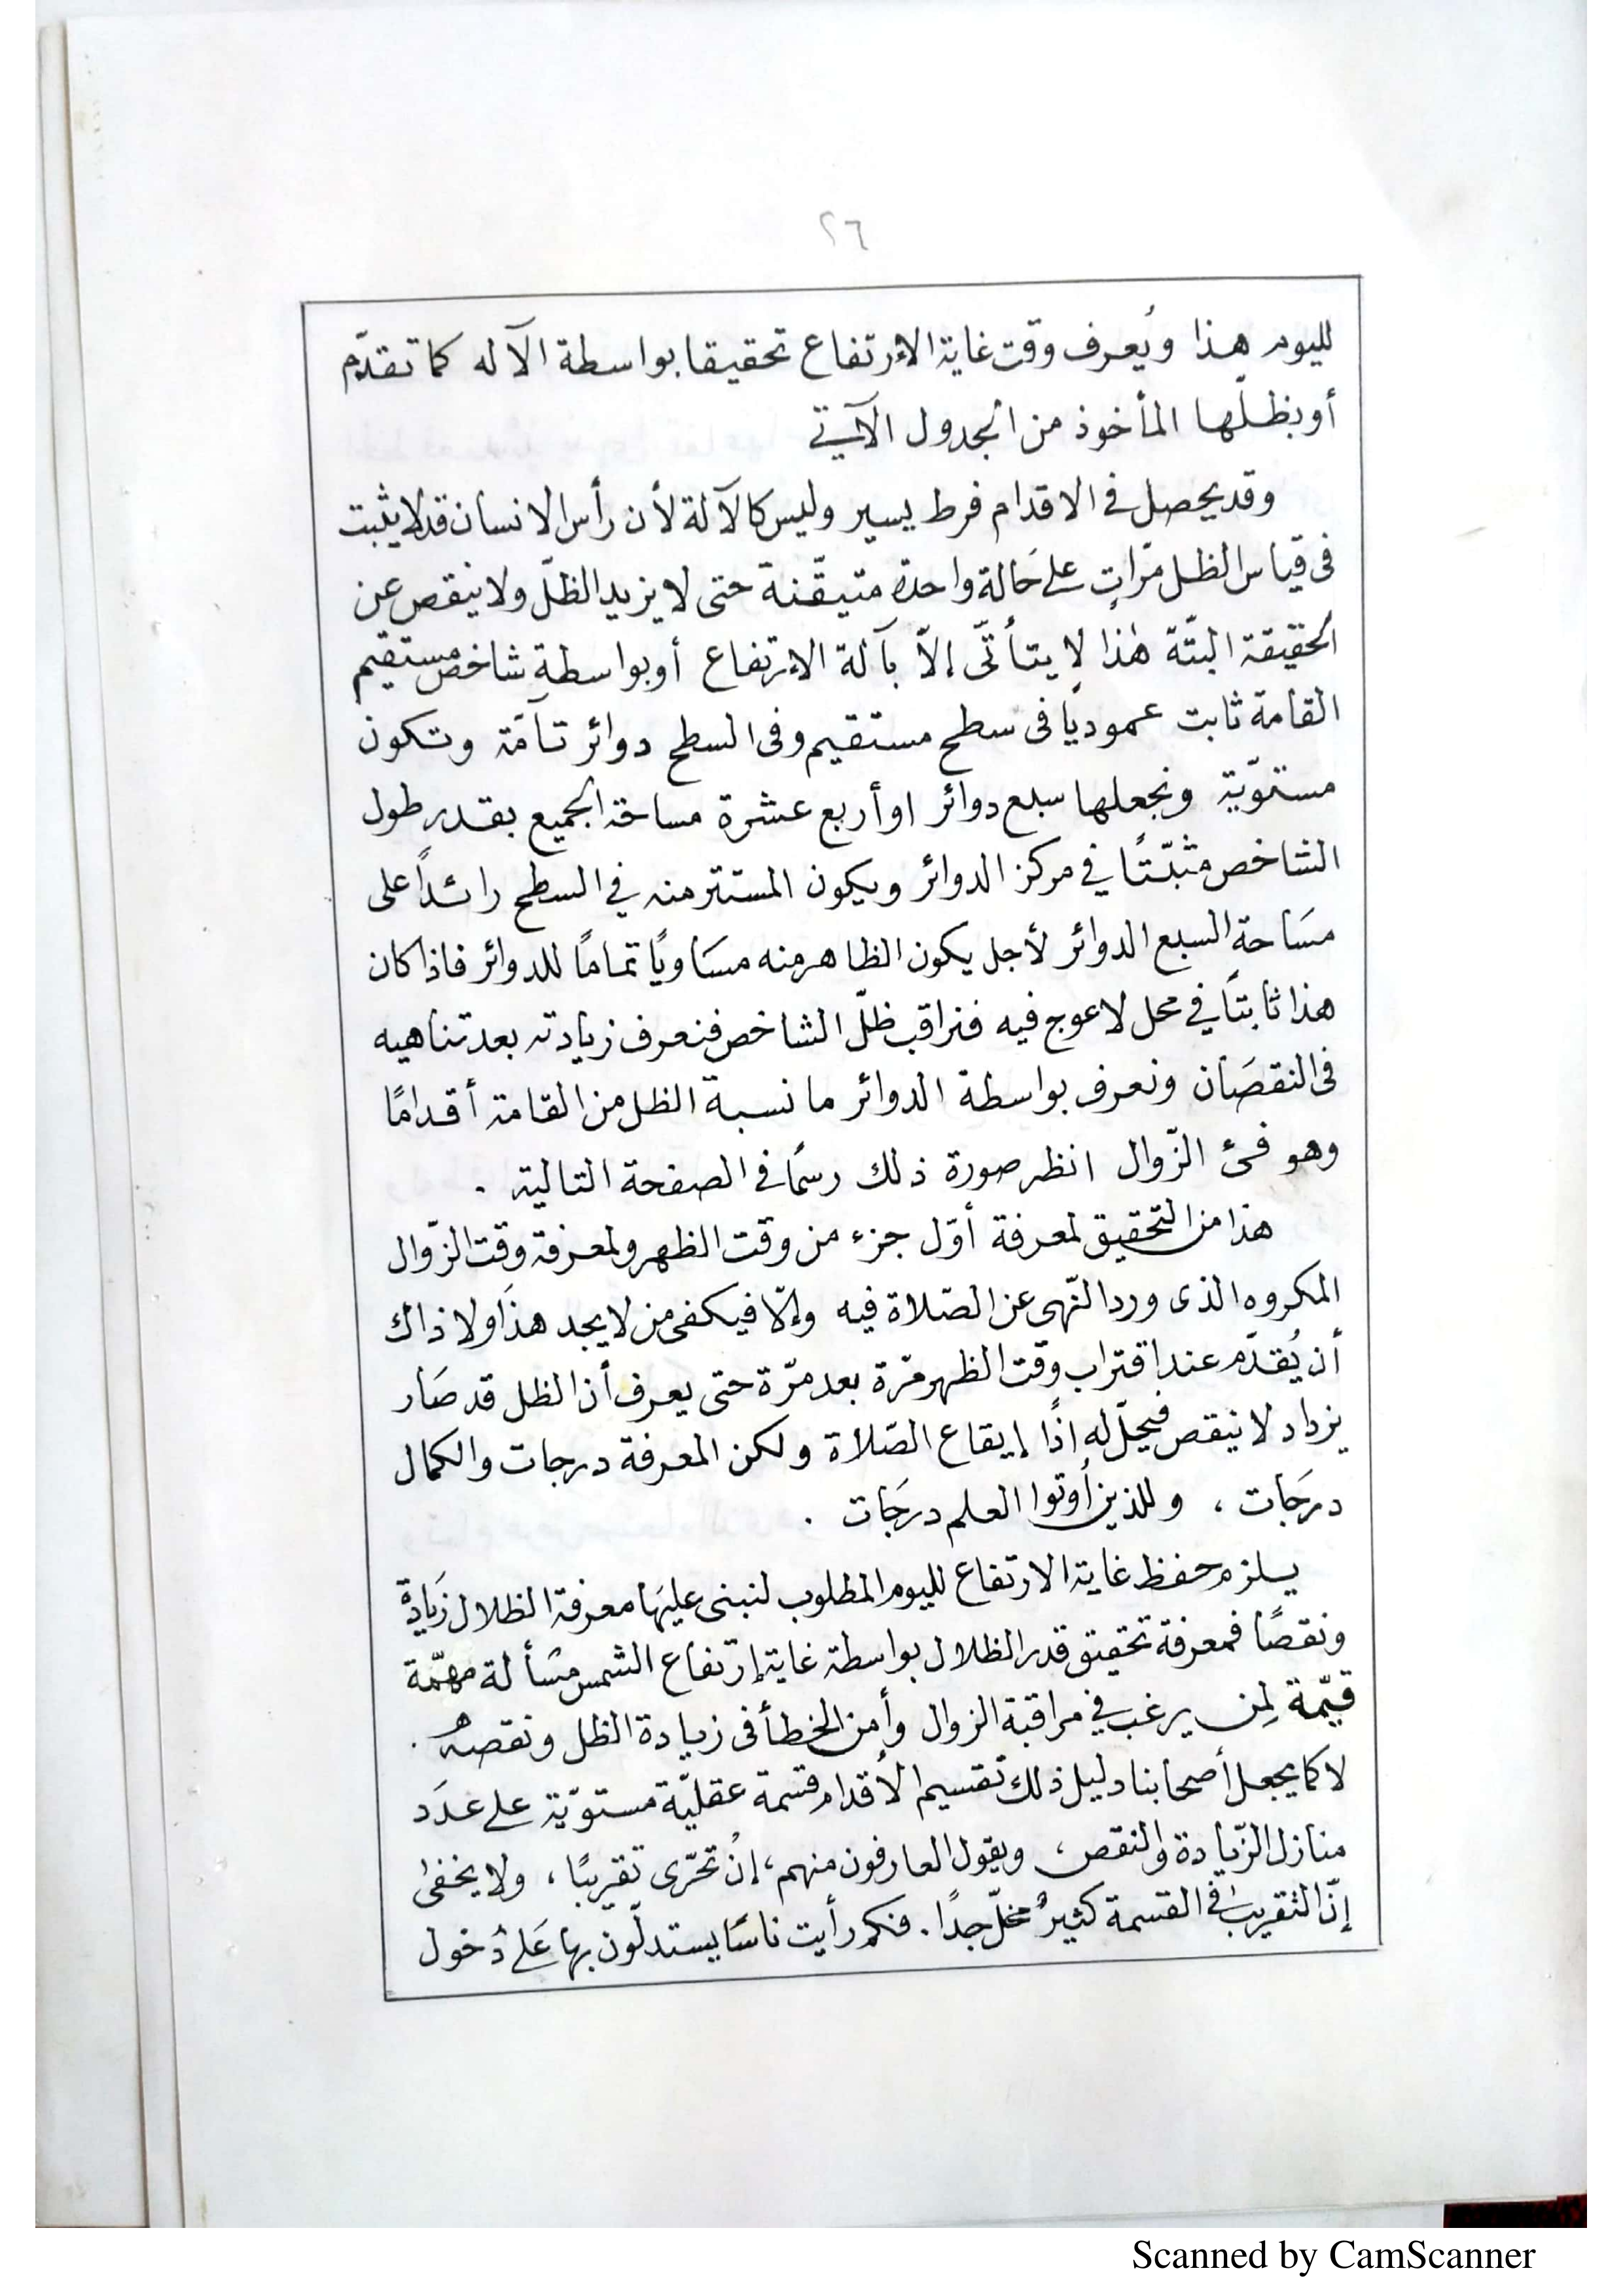 ٢٦
لليوم هذا ويُعرف وقت غاية الإرتفاع تحقيقا بواسطة الآله كما تقدّم
أو بظلّها المأخوذ من الجدول الآتي
وقد يحصل في الاقدام فرط يسير وليس كالآلة لأن رأس الانسان قد لا يثبت
فى قياس الظل مرّاتٍ على حَالة واحدة متيقّنة حتى لا يزيد الظلّ ولا ينقص عن
الحقيقة البتّة هٰذا لا يتأتّى إلاّ بآلة الإرتفاع أو بواسطة شاخص مستقيم
القامة ثابت عموديًا فى سطح مستقيم وفى السطح دوائر تآمّة وتكون
مستوّية ونجعلها سبع دوائر او أربع عشرة مساحة الجميع بقدر طول
الشاخص مثبّتًا في مركز الدوائر ويكون المستتر منه في السطح زائداً على
مسَاحة السبع الدوائر لأجل يكون الظاهر منه مسَاويًا تمامًا للدوائر فاذا كان
هذا ثابتًا في محل لا عوج فيه فنراقب ظلّ الشاخص فنعرف زيادته بعد تناهيه
فى النقصَان ونعرف بواسطة الدوائر ما نسبة الظل من القامة أقدامًا
وهو فئ الزّوال انظر صورة ذلك رسمًا في الصفحة التالية .
هذا من التحقيق لمعرفة أوّل جزء من وقت الظهر ولمعرفة وقت الزّوال
المكروه الذى ورد النّهى عن الصّلاة فيه وإلّا فيكفى من لا يجد هذَا ولا ذاك
أن يُقدّم عند اقتراب وقت الظهر مرّة بعد مرّة حتى يعرف أن الظل قد صَار
يزداد لا ينقص فيحلّ له اذًا إيقاع الصّلاة ولكن المعرفة درجات والكمال
درجَات ، وللذين أوتوا العلم درجَات .
يلزم حفظ غاية الارتفاع لليوم المطلوب لنبنى عليهَا معرفة الظلال زيَادة
ونقصًا فمعرفة تحقيق قدر الظلال بواسطة غاية إرتفاع الشمس مسْألة مهمّة
قيّمة لِمن يرغب في مراقبة الزوال وأمن الخطأ فى زيادة الظل ونقصه .
لا كما يجعل أصحابنا دليل ذلك تقسيم الأقدام قسمة عقليّة مستوّية على عدَد
منازل الزّيادة والنقص ، ويقول العارفون منهم ، إنْ تحرّى تقريبًا ، ولا يخفىٰ
إنّ التقريب في القسمة كثيرٌ مخلّ جدًا . فكم رأيت ناسًا يستدلّون بها عَلى دُخول
Scanned by CamScanner